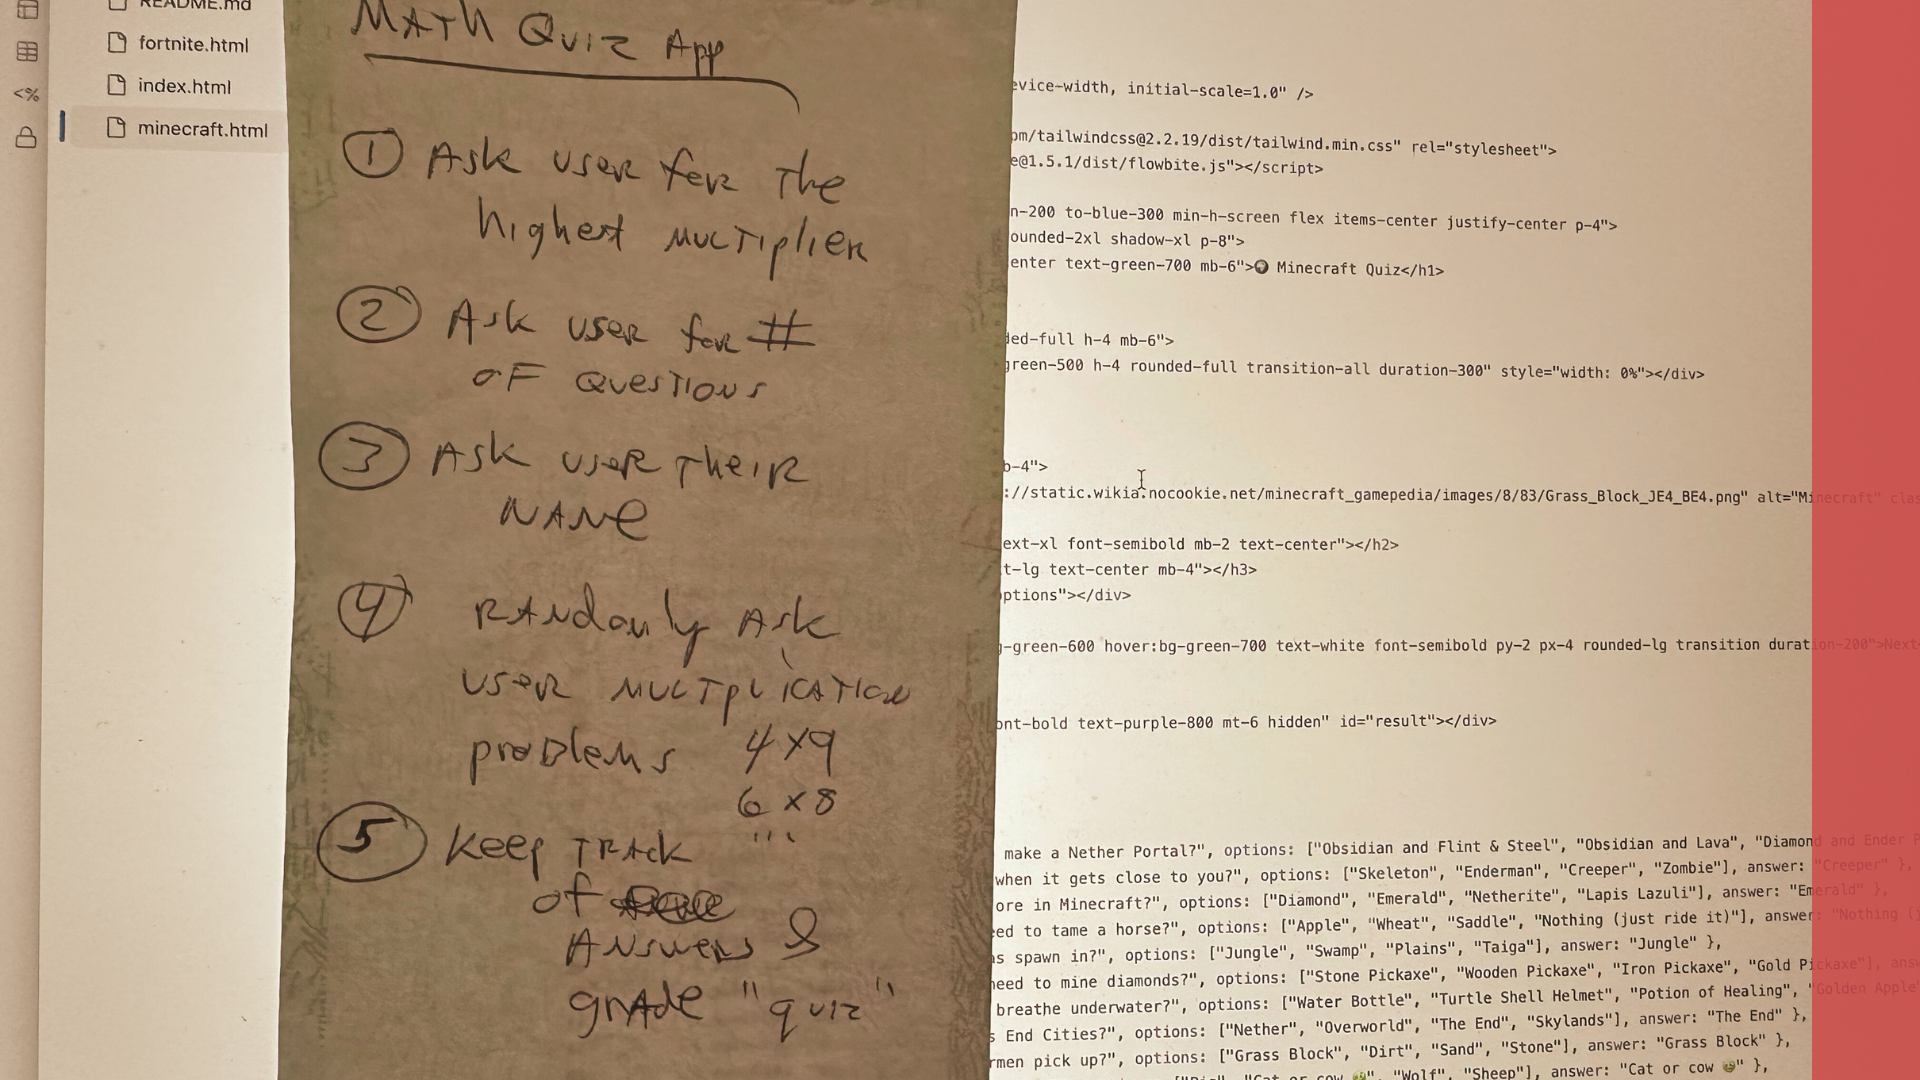 README.md
fortnite.html
index.html
<%
minecraft.html
MATH QUIZ App
① Ask user for The
highest MULTIplier
② Ask user for #
OF QUESTIONS
③ Ask user Their
NAME
④ RANdomly Ask
user MULTIplICATION
problems 4x9
6x8
...
⑤ Keep TRAck
of
ANswers &
grAde "quiz"
evice-width, initial-scale=1.0" />
om/tailwindcss@2.2.19/dist/tailwind.min.css" rel="stylesheet">
e@1.5.1/dist/flowbite.js"></script>
n-200 to-blue-300 min-h-screen flex items-center justify-center p-4">
ounded-2xl shadow-xl p-8">
enter text-green-700 mb-6"> Minecraft Quiz</h1>
ded-full h-4 mb-6">
green-500 h-4 rounded-full transition-all duration-300" style="width: 0%"></div>
b-4">
://static.wikia.nocookie.net/minecraft_gamepedia/images/8/83/Grass_Block_JE4_BE4.png" alt="Minecraft" clas
ext-xl font-semibold mb-2 text-center"></h2>
t-lg text-center mb-4"></h3>
ptions"></div>
g-green-600 hover:bg-green-700 text-white font-semibold py-2 px-4 rounded-lg transition duration-200">Next
ont-bold text-purple-800 mt-6 hidden" id="result"></div>
make a Nether Portal?", options: ["Obsidian and Flint & Steel", "Obsidian and Lava", "Diamond and Ender P
when it gets close to you?", options: ["Skeleton", "Enderman", "Creeper", "Zombie"], answer: "Creeper" },
ore in Minecraft?", options: ["Diamond", "Emerald", "Netherite", "Lapis Lazuli"], answer: "Emerald" },
ed to tame a horse?", options: ["Apple", "Wheat", "Saddle", "Nothing (just ride it)"], answer: "Nothing (j
s spawn in?", options: ["Jungle", "Swamp", "Plains", "Taiga"], answer: "Jungle" },
need to mine diamonds?", options: ["Stone Pickaxe", "Wooden Pickaxe", "Iron Pickaxe", "Gold Pickaxe"], answ
breathe underwater?", options: ["Water Bottle", "Turtle Shell Helmet", "Potion of Healing", "Golden Apple"
s End Cities?", options: ["Nether", "Overworld", "The End", "Skylands"], answer: "The End" },
rmen pick up?", options: ["Grass Block", "Dirt", "Sand", "Stone"], answer: "Grass Block" },
"Cat or cow 🤢", "Wolf", "Sheep"], answer: "Cat or cow 🤢" },